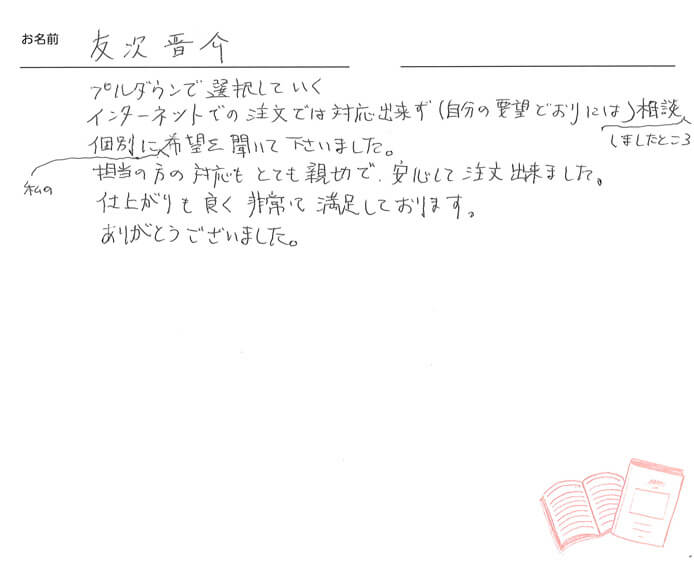 お名前 友次晋介
プルダウンで選択していく
インターネットでの注文では対応出来ず(自分の要望どおりには)相談
しましたところ
個別に希望を聞いて下さいました。
私の
担当の方の対応もとても親切で、安心して注文出来ました。
仕上がりも良く非常に満足しております。
ありがとうございました。